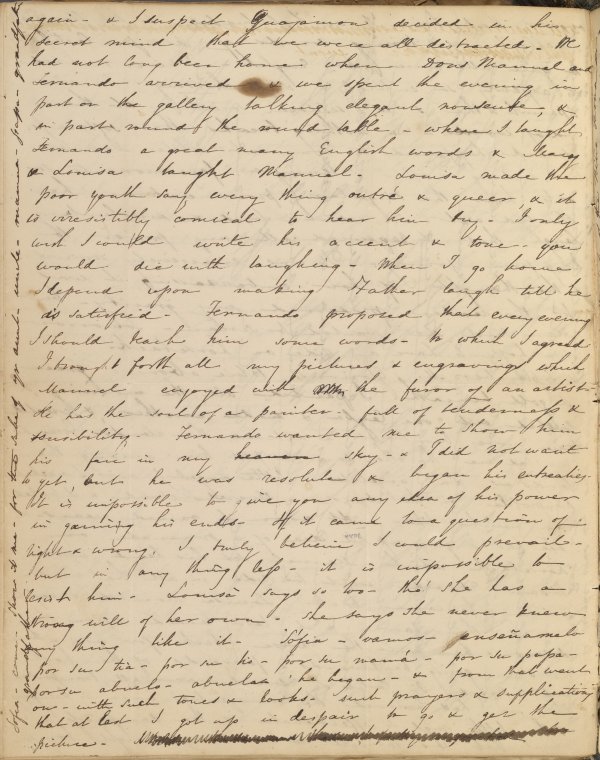 again - & I suspect Guajamon decided in his
secret mind that we were all distracted - We
had not long been home when Dons Manuel and
Fernando arrived & we spent the evening in
part on the gallery talking elegant nonsense, &
in part round the round table - where I taught
Fernando a great many English words & Mary
& Louisa taught Manuel - Louisa made the
poor youth say every thing outré & queer, & it
is irresistibly comical to hear him try - I only
wish I could write his accent & tone - you
would die with laughing - When I go home
I depend upon making Father laugh till he
is satisfied - Fernando proposed that every evening
I should teach him some words - to which I agreed
I brought forth all my pictures & engravings which
Manuel enjoyed with the furor of an artist -
He has the soul of a painter - full of tenderness &
sensibility - Fernando wanted me to show him
his face in my sky - & I did not want
to yet, but he was resolute & began his entreaties -
It is impossible to give you any idea of his power
in gaining his ends - If it came to a question of
right & wrong, I truly believe I could prevail -
but in any thing less - it is impossible to
resist him - Louisa says so too - tho' she has a
strong will of her own - She says she never knew
any thing like it - "Sofia - vamos - enseñamelo
por su tia - por su tio - por su mamá - por su papa -
por su abuelo - abuela" he began - & from that went
on - with such tones & looks - such prayers & supplications
that at last I got up in despair to go & get the
picture -
Sofia - come - show it me - for the sake of yr aunt - uncle - mama - papa - grandfather
grandmother